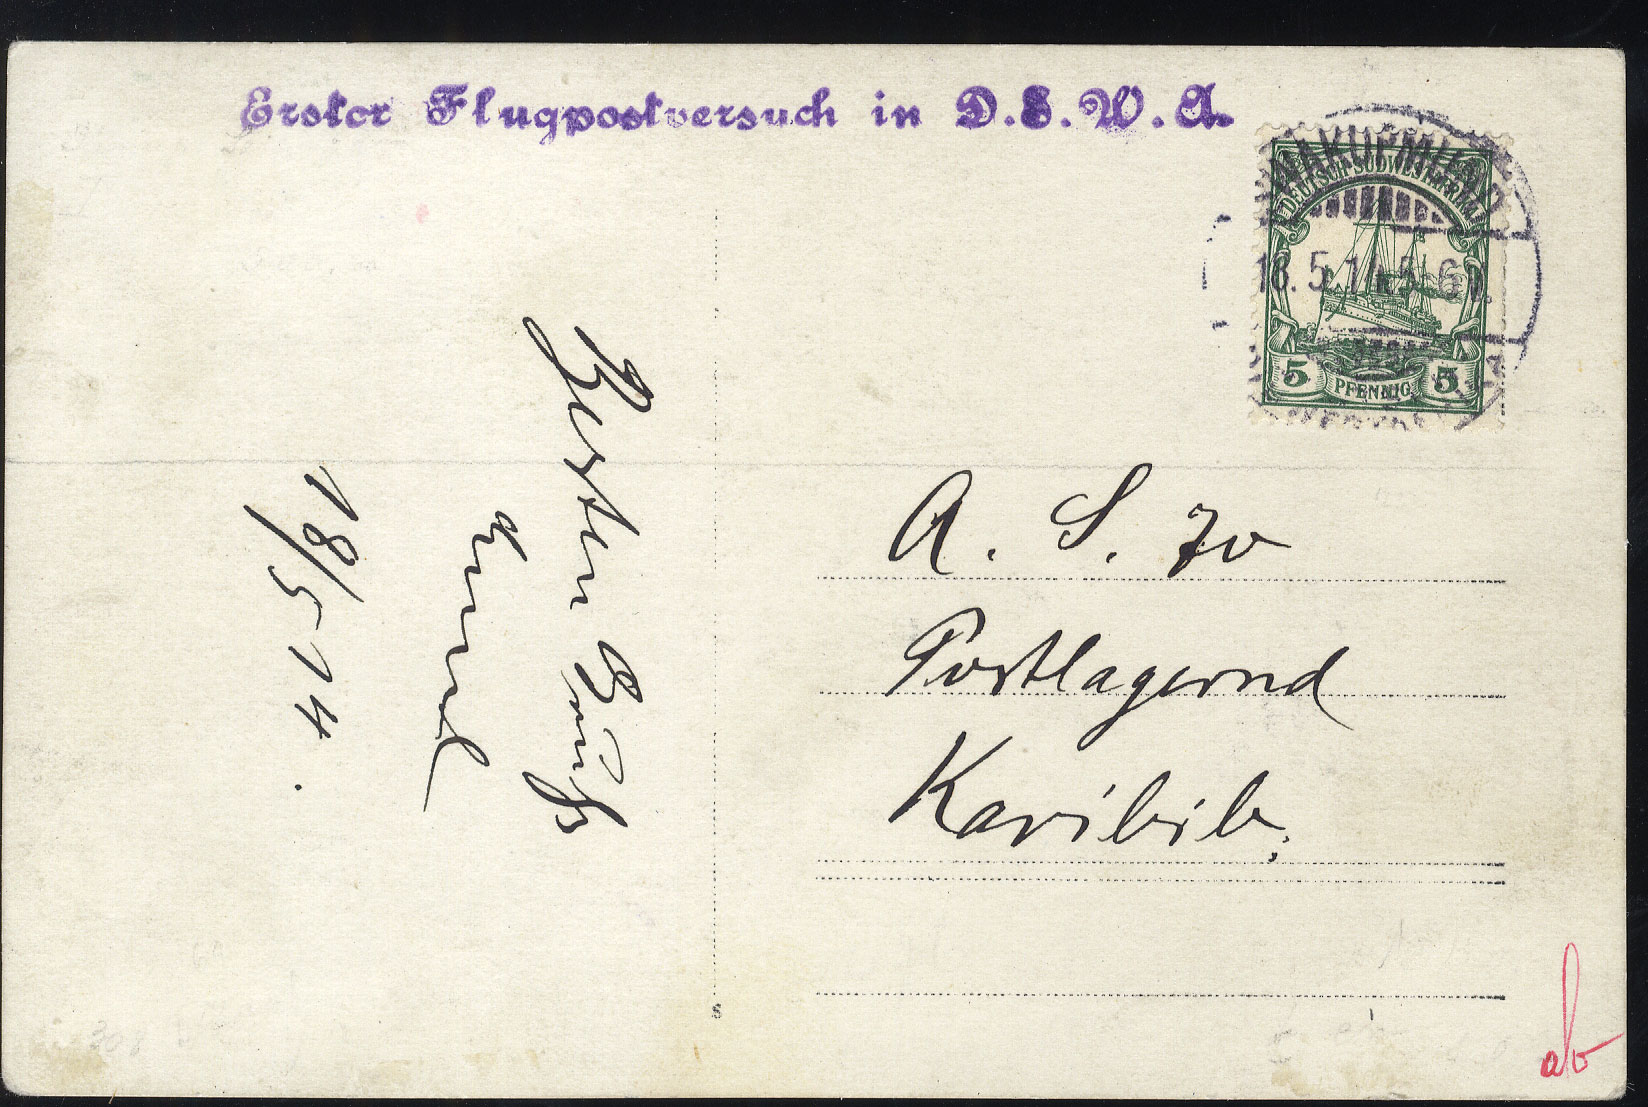 Erster Flugpostversuch in D.S.W.A.
SWAKOPMUND
18.5.14. 5-6 N.
DEUTSCH-SÜDWESTAFRIKA
5 PFENNIG 5
A. S. 70
Postlagernd
Karibib.
Besten Gruß
18/5 14.
s